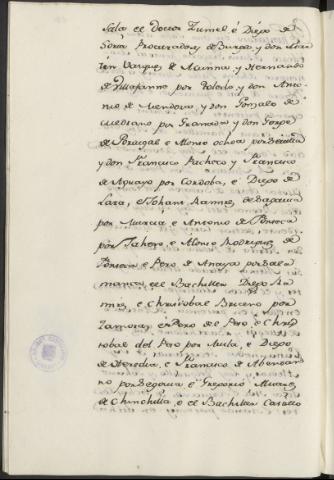 Sala el Doctor Zumel é Diego de
Soria Procuradores de Burgos, y don Mar
tin Vazquez de Acuña, y Hernando
de Villafañe por Toledo, y don Anto
nio de Mendoza, y don Gonzalo de
Medrano por Granada, y don Jorge
de Portugal e Alonso ochoa por Sevilla
y don Francisco Pacheco y Francisco
de Aguayo por Cordoba, e Diego de
Lara, e Johan Ramirez de Saguera
por Murcia, e Antonio de Fonseca
por Jahen, e Alonso Rodriguez de
Fonseca e Pero de Anaya por Sala
manca, e el Bachiller Diego Ra
mirez, e Christobal Briceno por
Zamora, e Pero de el Pero, e Chris
tobal del Pero por Avila, e Diego
de Heredia, e Francisco de Abendaño
no por Segovia, e Gregorio Alvarez
de Chinchilla, e el Bachiller Carrillo